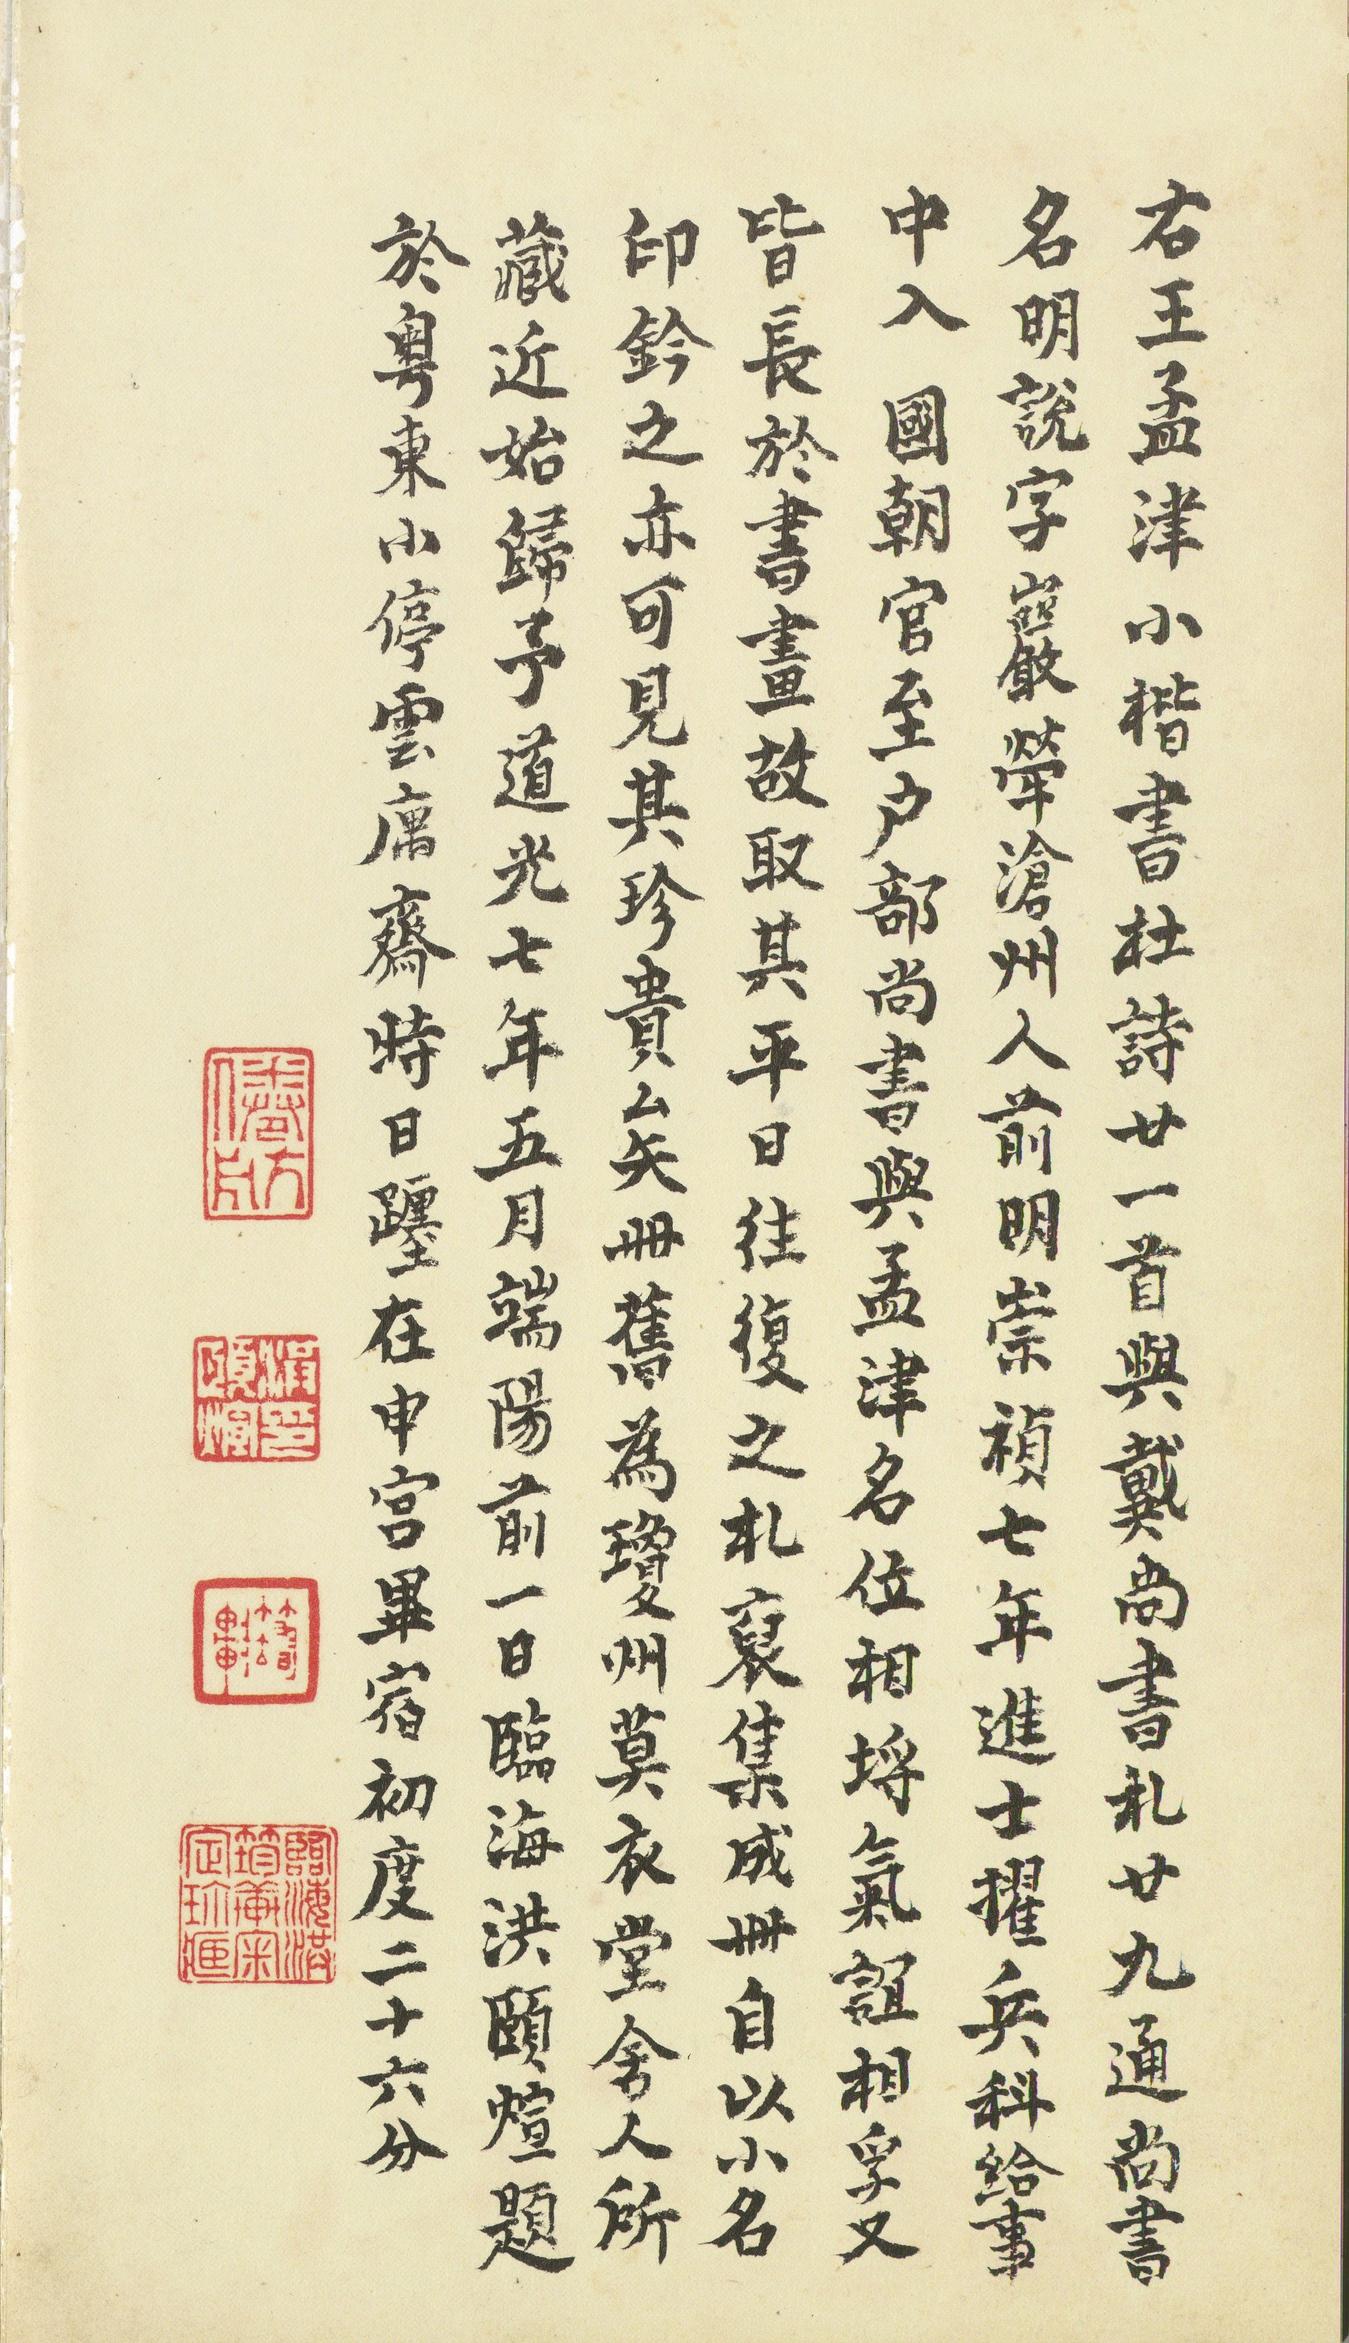 右王孟津小楷書杜詩廿一首與戴尚書札廿九通尚書
名明說字巖犖滄州人前明崇禎七年進士擢兵科給事
中入 國朝官至户部尚書與孟津名位相埒氣誼相孚又
皆長於書畫故取其平日往復之札裒集成冊自以小名
印鈐之亦可見其珍貴矣冊舊為瓊州莫衣堂舍人所
藏近始歸予道光七年五月端陽前一日臨海洪頤煊題
於粵東小停雲寓齋時日躔在申宮畢宿初度二十六分
洪印頤煊
筠軒
臨海洪筠軒宋定珍